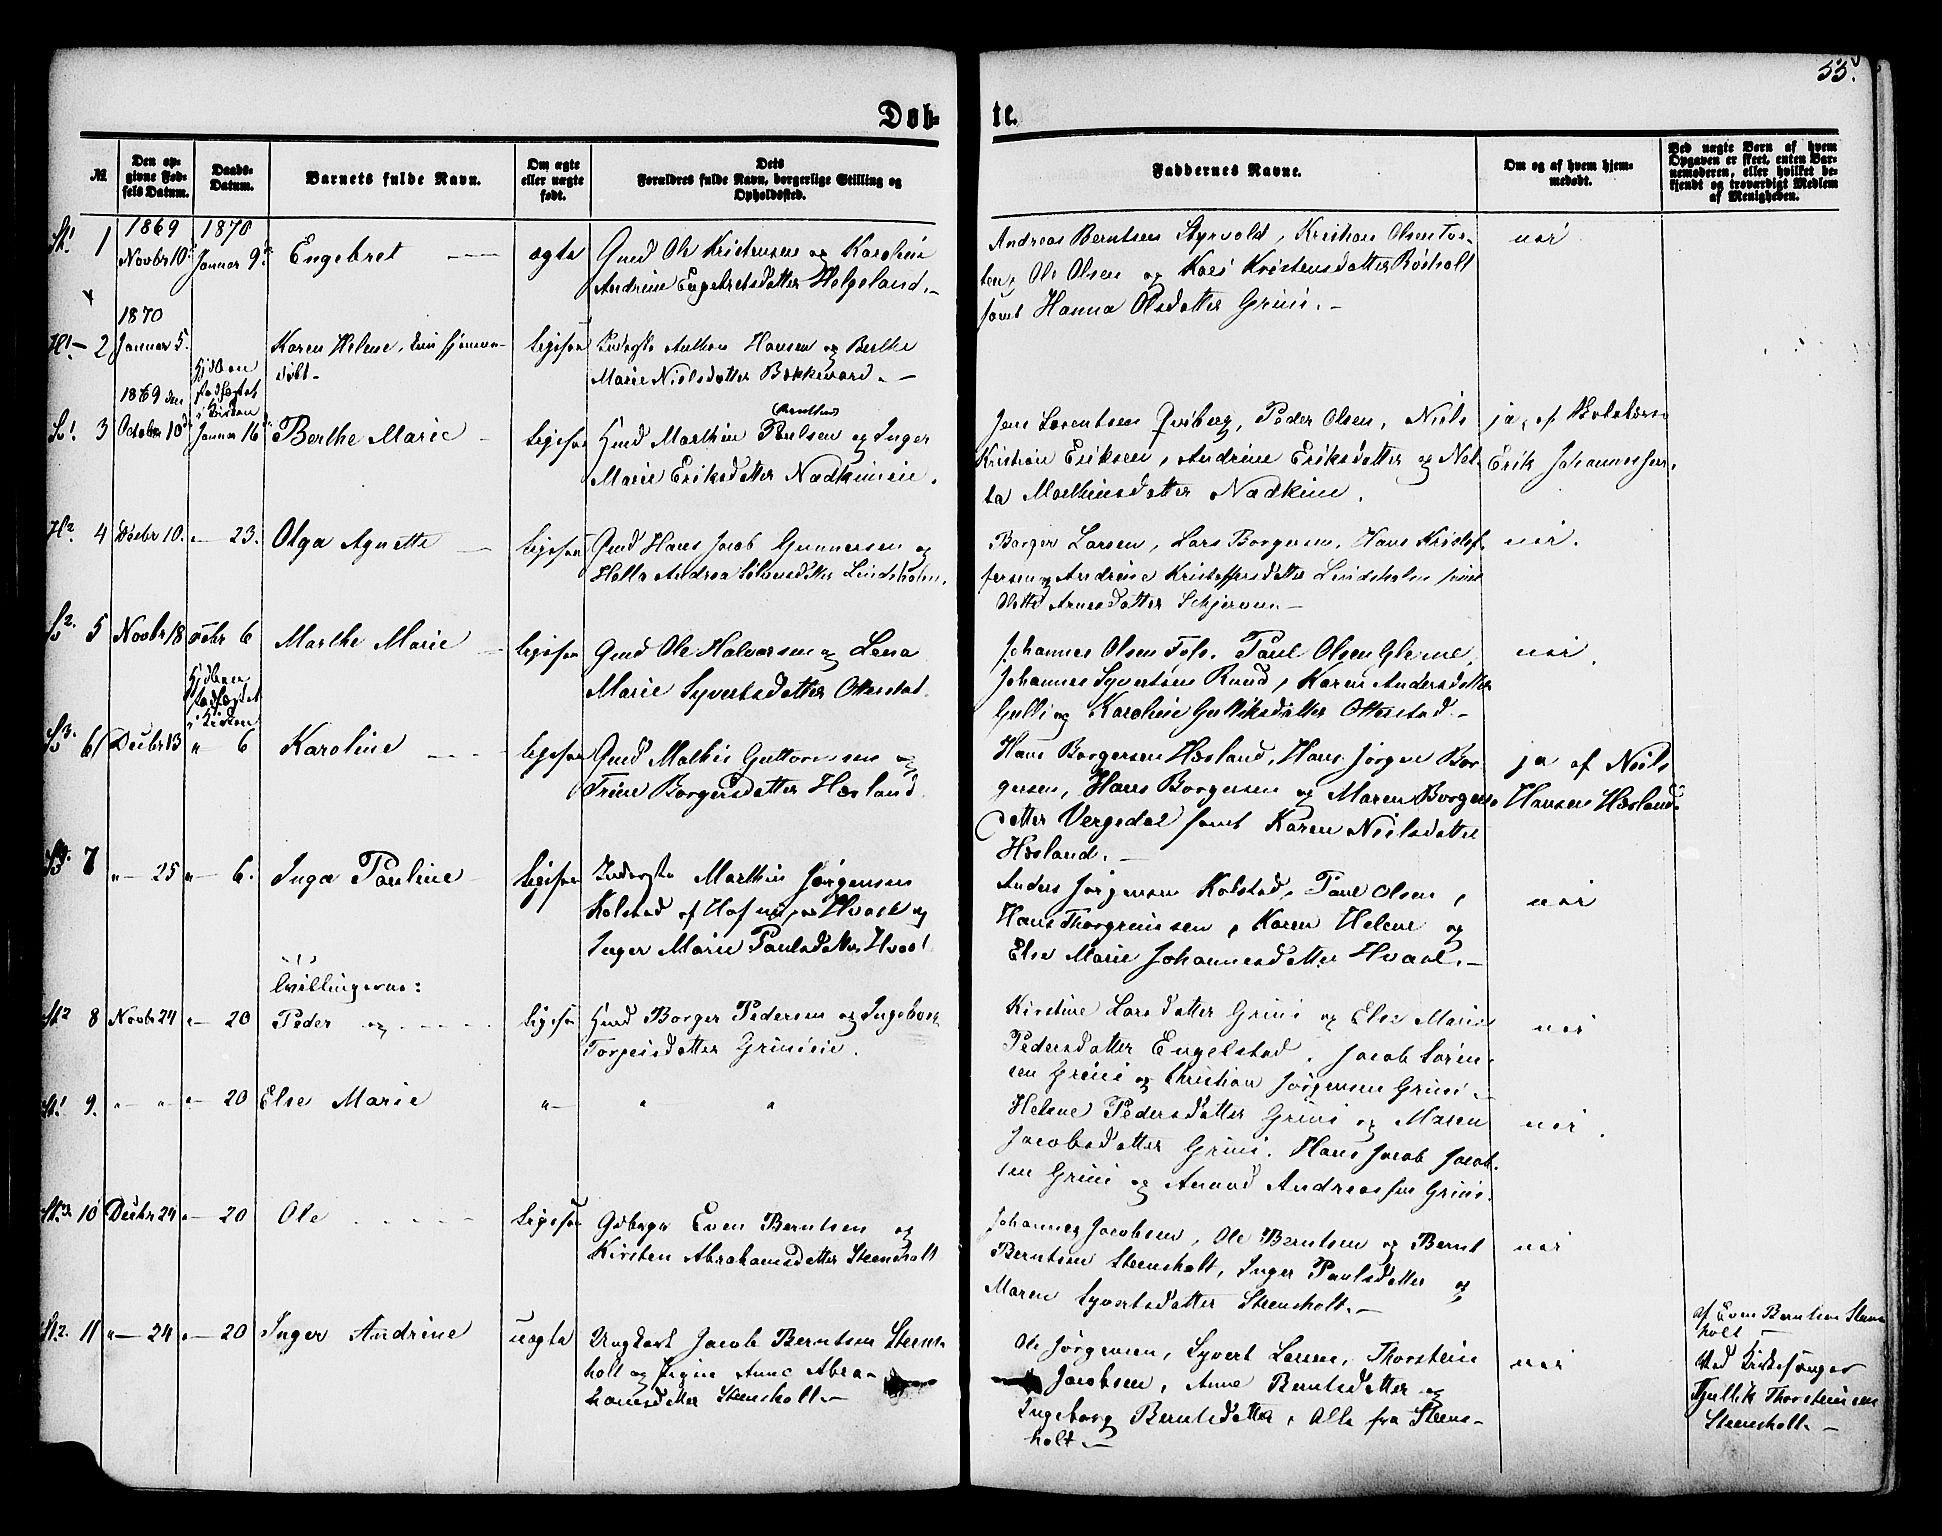 55.
Døb-
te.
№
Den op-
givne Fød-
sels Datum.
Daabs-
Datum.
Barnets fulde Navn.
Om ægte
eller uægte
født.
Dets
Forældres fulde Navn, borgerlige Stilling og
Opholdssted.
Faddernes Navne.
Om og af hvem hjem-
medøbt.
Ved uægte Børn af hvem
Opgaven er skeet, enten Bar-
nemoderen, eller hvilket be-
kjendt og troværdigt Medlem
af Menigheden.
St1 1
1869
Novbr 10
1870
Januar 9
Engebret
ægte
Gmd Ole Kristensen og Karoline
Andrine Engebretsdatter Helgeland.
Andreas Berntsen Styrvold, Kristian Olsen Tor-
Ole Olsen og Kristensdatter Rösholt
samt Hanna Olsdatter Grini.
nei
H1 2
1870
Januar 5.
Karen Helene,
døbt
ligesaa
Inderste Anthon Hansen og Berthe
Marie Nielsdatter Bekkevard.
Sv1 3
1869 den
October 10
stadfæstet
i Kirken
Januar 16
Berthe Marie
ligesaa
Hmd Marthin Paulsen og Inger
Marie Eriksdatter Nadkimeie.
Jens Lorentsen Qvisberg, Peder Olsen, Niels
Kristian Eriksen, Andrine Eriksdatter og
Marthinsdatter Nadkim.
ja, af
Erik Johannessen.
H2 4
Decbr 10.
- 23.
Olga Agnette
ligesaa
Gmd Hans Jacob Gunnersen og
Helle Andrea Lindsholm.
Borger Larsen, Lars Borgersen, Hans Kristof-
fersen og Andrine Kristoffersdatter Lindsholm samt
Arnesdatter Schjerven
nei.
Sv2 5
Novbr 18
Febr 6
Marthe Marie
ligesaa
Gmd Ole Halvorsen og Lena
Marie Syvertsdatter Otterstad.
Johannes Olsen Fols. Paul Olsen
Johannes Syvertsen Ruud, Karen Andersdatter
Gulli og Karoline Gulliksdatter Otterstad.
nei.
Sv3 6
Decbr 13
stadfæstet
i Kirken
" 6
Karoline
ligesaa
Gmd Mathis Guttormsen og
Trine Borgersdatter Hæsland
Hans Borgersen Hæsland, Hans Jörgen Bor-
gersen, Hans Borgersen og Maren Borgers-
datter Vergedal samt Karen Nielsdatter
Hæsland.
ja af Niels
Hansen Hæsland
7
" - 25
" - 6.
Inga Pauline
ligesaa
Inderste Marthin Jörgensen
Kolstad af Hof nu paa Hvaal og
Inger Marie Paulsdatter Hvaal
Anders Jörgensen Kolstad, Paul Olsen,
Hans Thorgrimsen, Karen Helene og
Else Marie Johannesdatter Hvaal.
nei
St2 8
Novbr 24
" - 20
Tvillingerne:
Peder og
ligesaa
Hmd Borger Pedersen og Ingeborg
Torgeisdatter Grinieie.
Kirstine Larsdatter Grini og Else Marie
Pedersdatter Engelstad. Jacob Sören-
sen Grini og Christian Jörgensen Grini.
nei
St1 9.
" "
" - 20
Else Marie
" -
" "
Helene Pedersdatter Grini og Maren
Jacobsdatter Grini. Hans Jacob Jacob-
sen Grini og Amund Andreassen Grini.
nei.
10
Decbr 24
" - 20
Ole
ligesaa
Gbrgr Even Berntsen og
Kirsten Abrahamsdatter Steensholt
Johannes Jacobsen, Ole Berntsen og Bernt
Berntsen Steensholt, Inger Paulsdatter og
Maren Syvertsdatter Steensholt.
nei
St2. 11
" - 24
" - 20
Inger Andrine
uægte
Ungkarl Jacob Berntsen Steens-
holt og Pigen Anne Abra-
hamsdatter Steensholt.
Ole Jörgensen, Syvert Larsen, Thorstein
Jacobsen, Anne Berntsdatter og
Ingeborg Berntsdatter, Alle fra Steens-
holt.
nei
af Even Berntsen Steens-
holt
Ved Kirkesanger
Gullik Thorsteinsen
Steensholt.